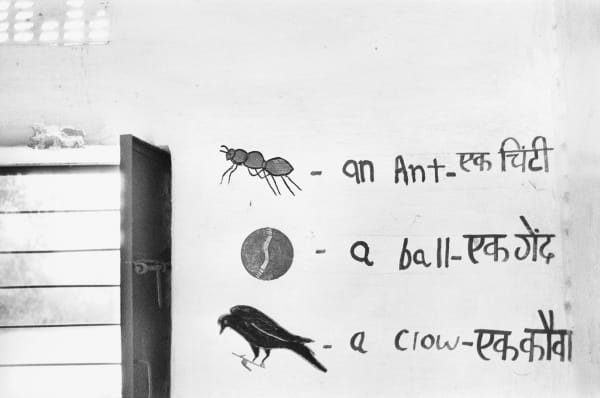 - an Ant-एक चिंटी
- a ball-एक गेंद
- a Clow-एक कौवा